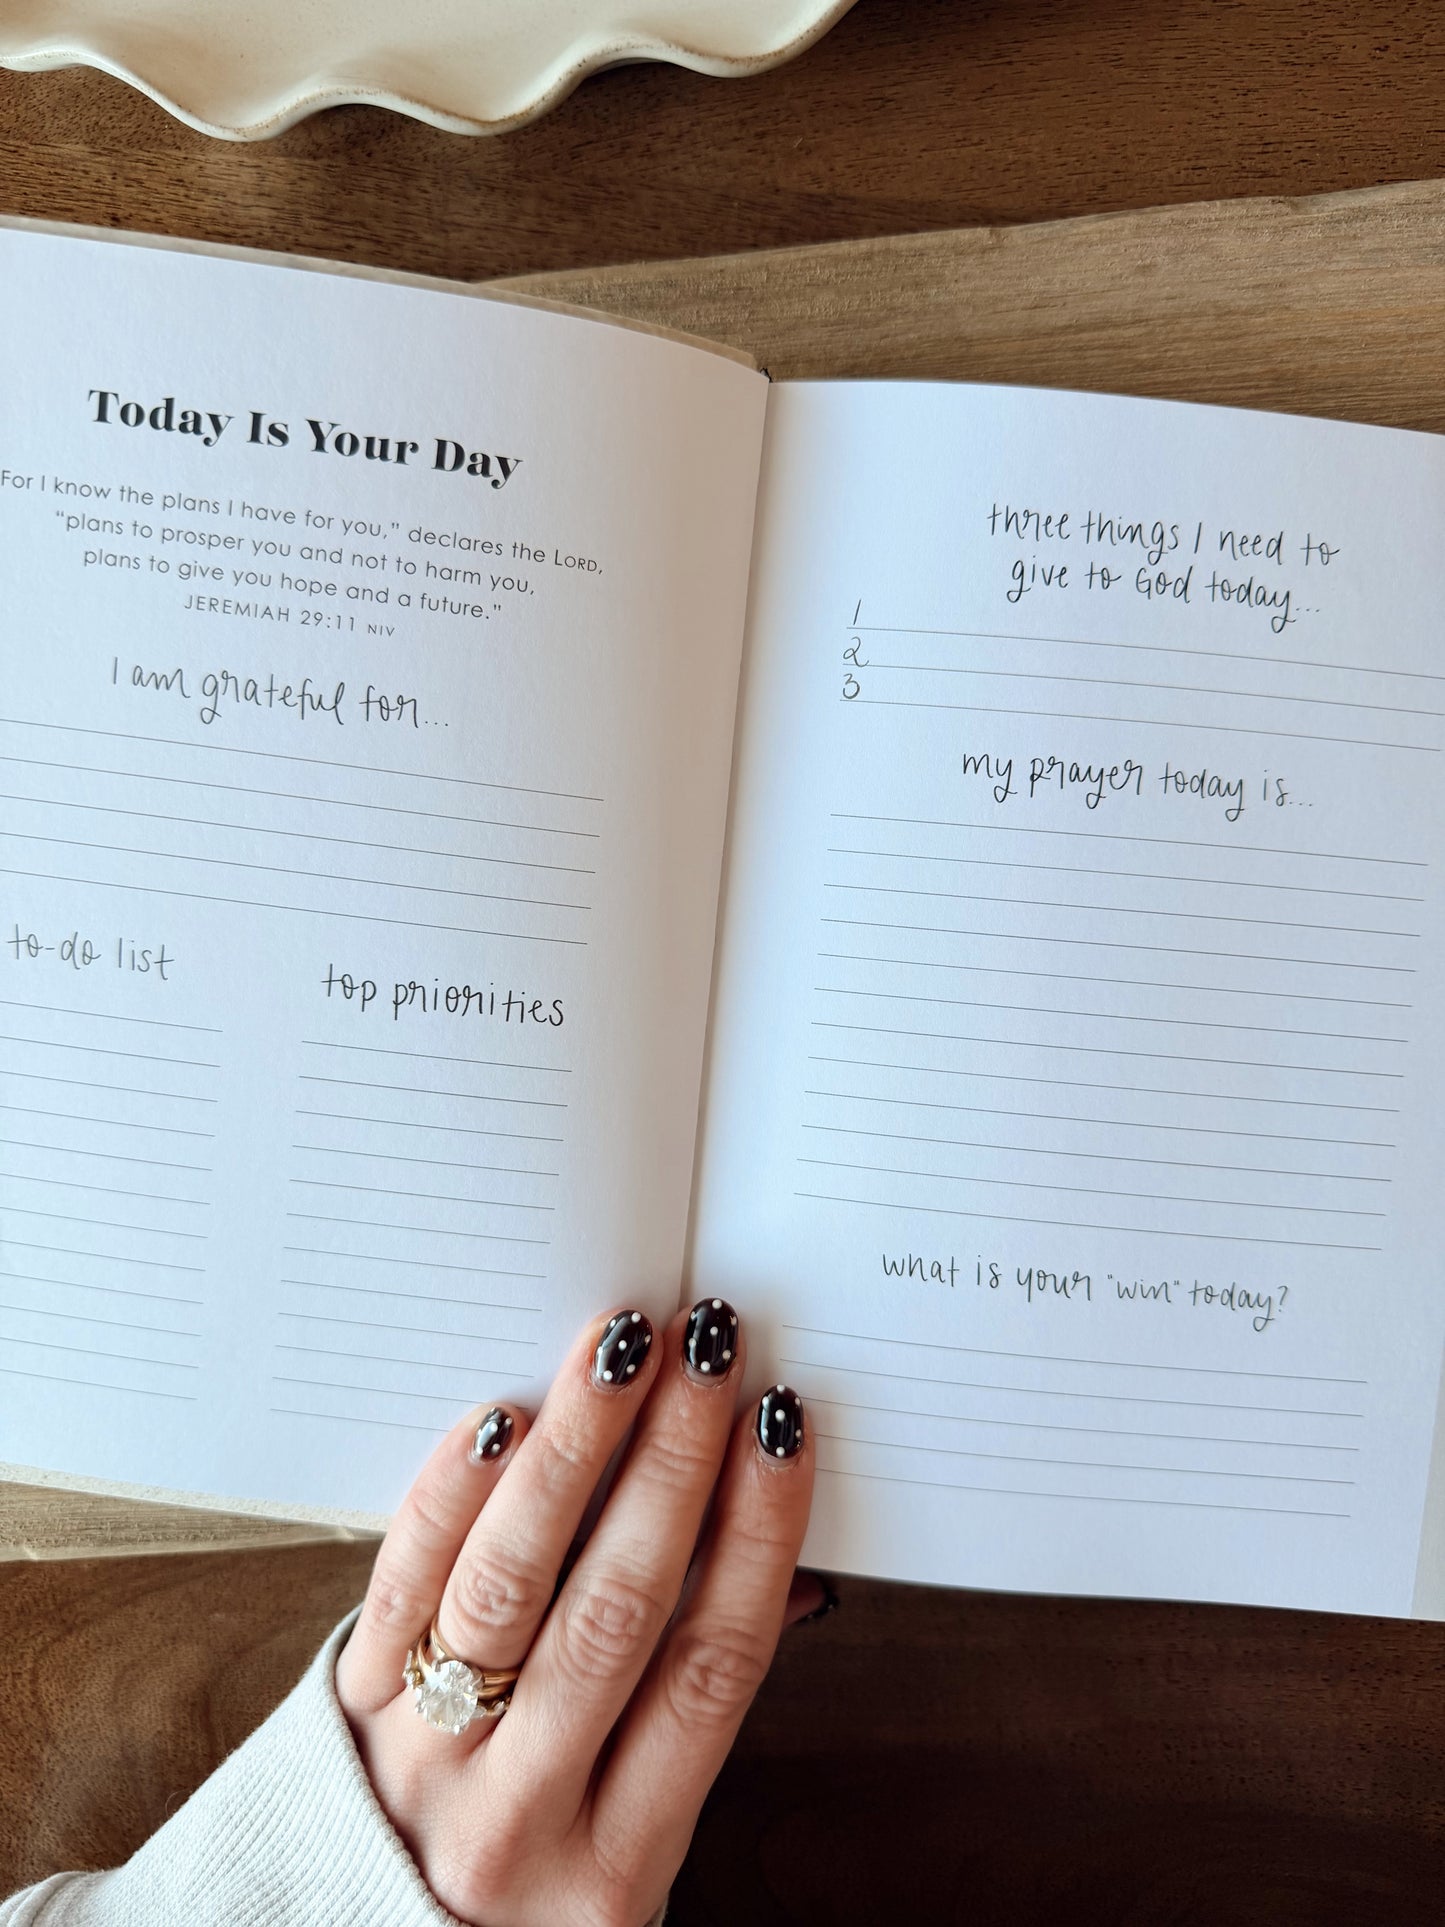 Today Is Your Day
For I know the plans I have for you,” declares the LORD,
“plans to prosper you and not to harm you,
plans to give you hope and a future.”
JEREMIAH 29:11 NIV
I am grateful for...
to-do list
top priorities
three things I need to
give to God today...
1
2
3
my prayer today is...
what is your "win" today?